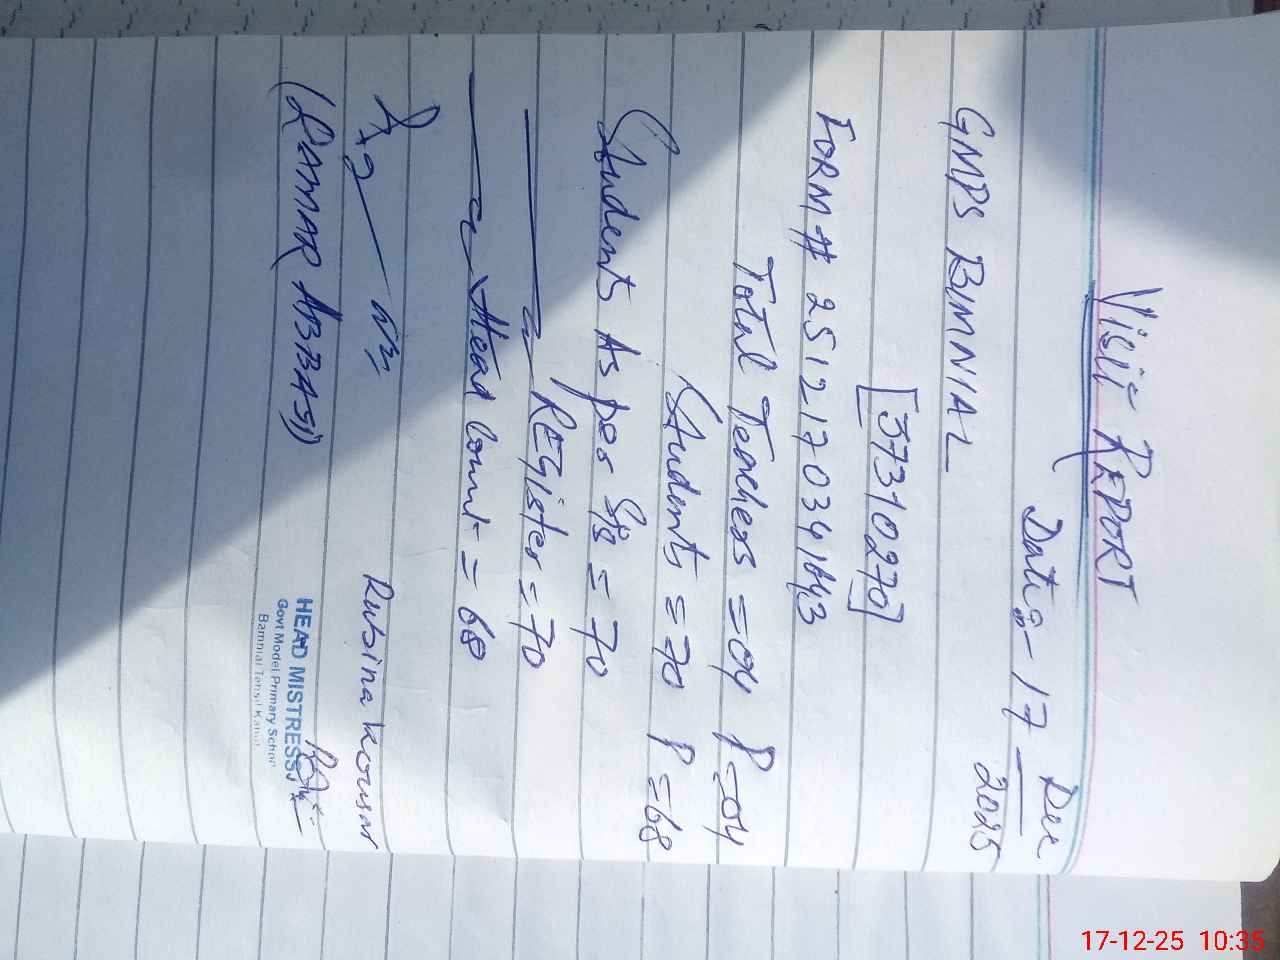 Visit REPORT
Date:- 17 Dec
2025
GMPS BIMNIAL
[37310270]
FORM # 2512170341643
Total Teachers = 04 P = 04
Students = 70 P = 68
Students As per Sis = 70
REGister = 70
Head Count = 68
Rubina Kousar
(QAMAR ABBASI)
HEAD MISTRESS
Govt Model Primary School
Bamnial Tehsil
17-12-25 10:35